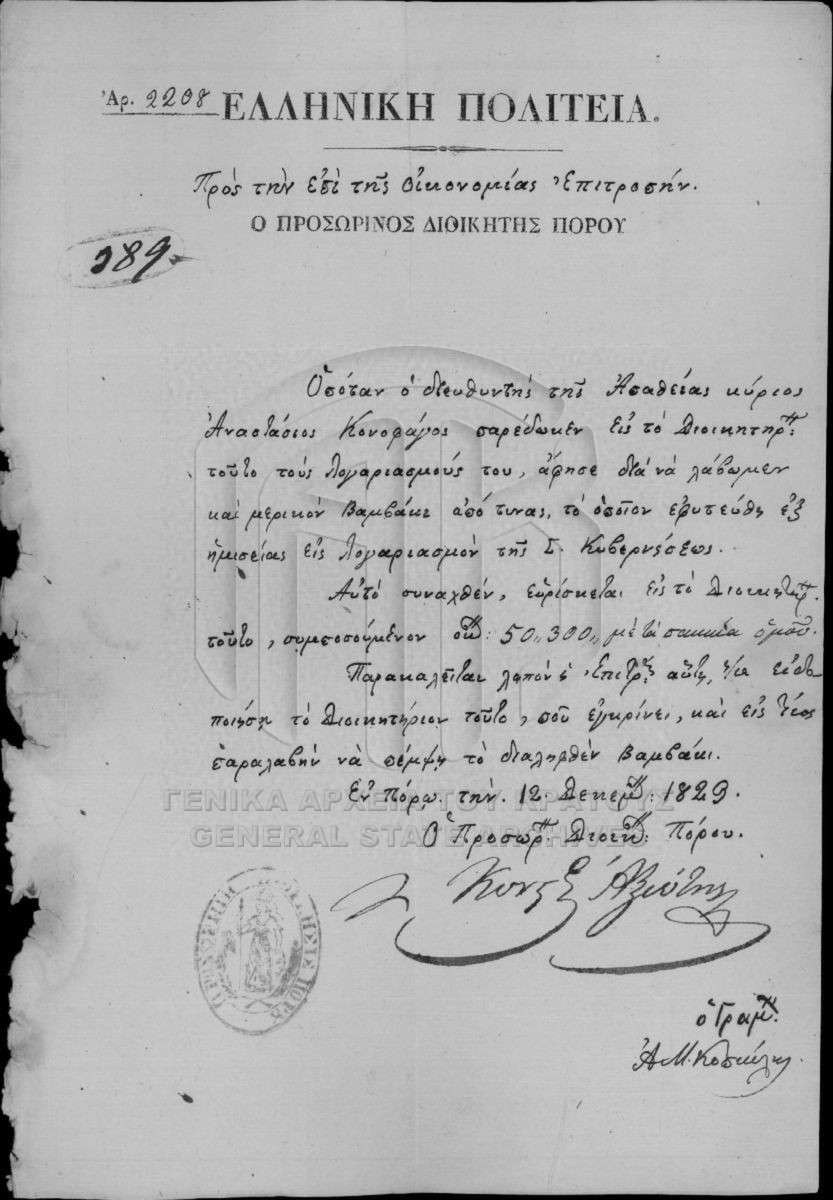 Ἀρ. 2208 ΕΛΛΗΝΙΚΗ ΠΟΛΙΤΕΙΑ.
Πρὸς τὴν ἐπὶ τῆς Οἰκονομίας Ἐπιτροπήν.
Ο ΠΡΟΣΩΡΙΝΟΣ ΔΙΟΙΚΗΤΗΣ ΠΟΡΟΥ
189.
Ὁπόταν ὁ διευθυντὴς τῆς κύριος
Ἀναστάσιος Κονοφάγος παρέδωκεν εἰς τὸ Διοικητήρ:
τοῦτο τοὺς λογαριασμούς του, ἄφησε διὰ νὰ λάβωμεν
καὶ μερικὸν βαμβάκι ἀπό τινας, τὸ ὁποῖον ἐφυτεύθη ἐξ
ἡμισείας εἰς λογαριασμὸν τῆς Σ. Κυβερνήσεως.
Αὐτὸ συναχθὲν, εὑρίσκεται εἰς τὸ Διοικητήρ.
τοῦτο, συμποσούμενον ὀκ: 50,,300,, μὲ τὰ σακκία ὁμοῦ.
Παρακαλεῖται λοιπὸν ἡ Ἐπιτρ: αὕτη, εἰδο
ποιήσῃ τὸ Διοικητήριον τοῦτο, ποῦ ἐγκρίνει, καὶ εἰς
παραλαβὴν νὰ πέμψῃ τὸ διαληφθὲν βαμβάκι.
Ἐν Πόρῳ τὴν 12 Δεκεμ: 1829.
Ὁ Προσωρ: Διοικ: Πόρου.
Κωνς Ἀξιώτης
ὁ Γραμ:
Ἀ Μ.
ΓΕΝΙΚΑ ΑΡΧΕΙΑ ΤΟΥ ΚΡΑΤΟΥΣ
GENERAL STATE ARCHIVES